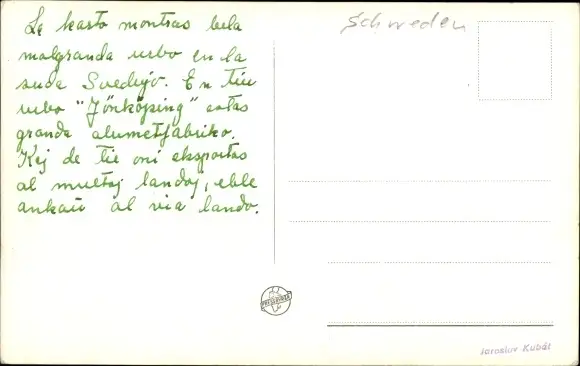 La karto montras bela
malgranda urbo en la
suda Svedujo. En tiu
urbo "Jönköping" estas
granda alumetfabriko.
Kej de tie oni eksportas
al multaj landoj, eble
ankaŭ al via lando.
Schweden
PRESSBYRÅN
Jaroslav Kubát